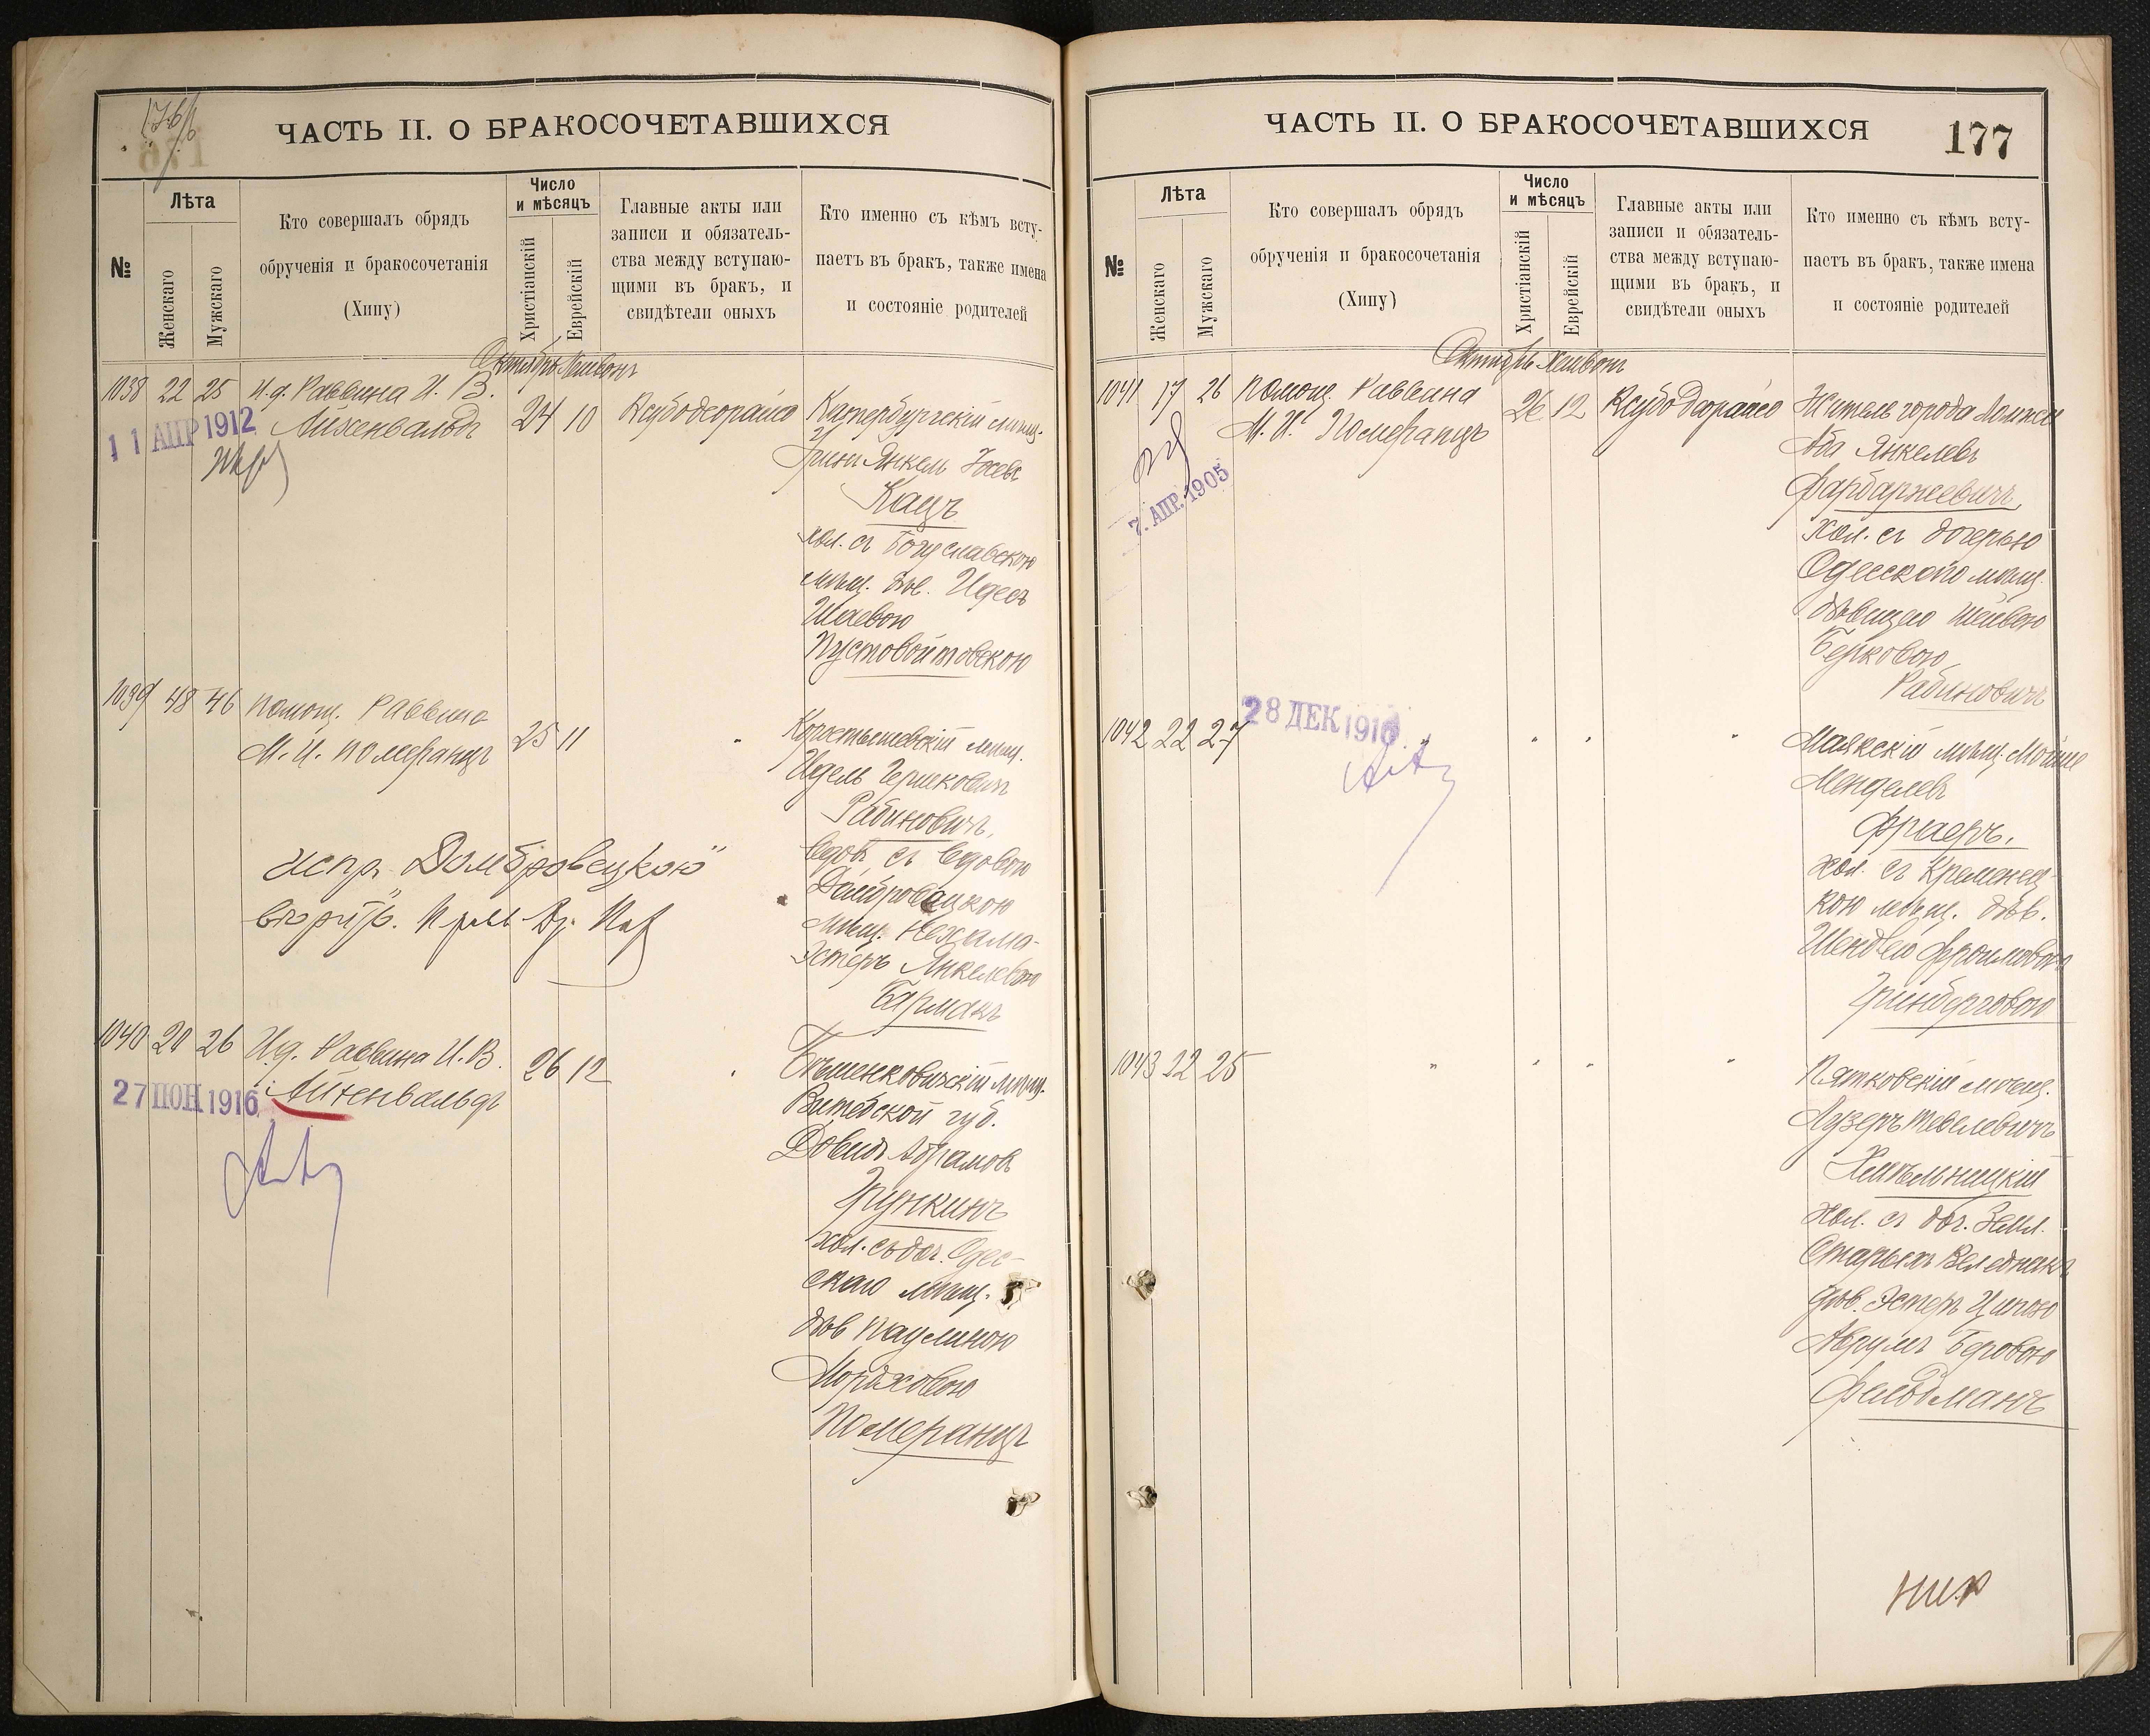 176
ЧАСТЬ II. О БРАКОСОЧЕТАВШИХСЯ
№
Лѣта
Женскаго
Мужскаго
Кто совершалъ обрядъ
обрученія и бракосочетанія
(Хипу)
Число
и мѣсяцъ
Христіанскій
Еврейскій
Главные акты или
записи и обязатель-
ства между вступаю-
щими въ бракъ, и
свидѣтели оныхъ
Кто именно съ кѣмъ всту-
паетъ въ бракъ, также имена
и состояніе родителей
Октябрь Хешвонъ
1038 22 25 И.д. Раввина И. В.
Айхенвальдъ
24 10 Ксубодеорайсо
11 АПР 1912
Катербургскій мѣщ.
Янкель
Кацъ
хол. съ Богуславскою
мѣщ. дѣв. Идесъ
Шаевою
Пустовойтовскою
1039 48 46 Помощ. Раввина
М. И. Померанцъ
25 11 "
Коростышевскій мѣщ.
Идель Гершковичъ
Рабиновичъ,
вдов. съ вдовою
Домбровецкою
мѣщ. Нехама-
Эстеръ Янкелевою
Барманъ
испр. Домбровецкою"
1040 20 26 И.д. Раввина И. В.
Айхенвальдъ
26 12 "
27 ІЮН 1916
Бѣшенковичскій мѣщ.
Витебской губ.
Довидъ Абрамов
Грункинъ
хол. съ доч. Одес-
скаго мѣщ.
дѣв. Паулиною
Мордховою
Померанцъ
ЧАСТЬ II. О БРАКОСОЧЕТАВШИХСЯ
177
№
Лѣта
Женскаго
Мужскаго
Кто совершалъ обрядъ
обрученія и бракосочетанія
(Хипу)
Число
и мѣсяцъ
Христіанскій
Еврейскій
Главные акты или
записи и обязатель-
ства между вступаю-
щими въ бракъ, и
свидѣтели оныхъ
Кто именно съ кѣмъ всту-
паетъ въ бракъ, также имена
и состояніе родителей
Октябрь Хешвонъ
1041 17 26 Помощ. Раввина
М. И. Померанцъ
26 12 Ксубо Деорайсо
7. АПР. 1905
Житель города Ломжи
Аба Янкелевъ
Фарбаржевичъ,
хол. съ дочерью
Одесскаго мѣщ.
дѣвицею Шейвою
Берковою
Рабиновичъ
1042 22 27 " " " "
28 ДЕК 1916
Маякскій мѣщ. Мойше
Менделевъ
Фраеръ.
хол. съ Кременец-
кою мѣщ. дѣв.
Шендлею Фроимовою
Гринберговою
1043 22 25 " " " "
Пятковскій мѣщ.
Лузеръ Тевелевичъ
Хмѣльницкій
хол. съ доч. Земл.
Старыхъ Веледникъ
дѣв. Эстеръ Ципою
Аврумъ Беровою
Фельдманъ